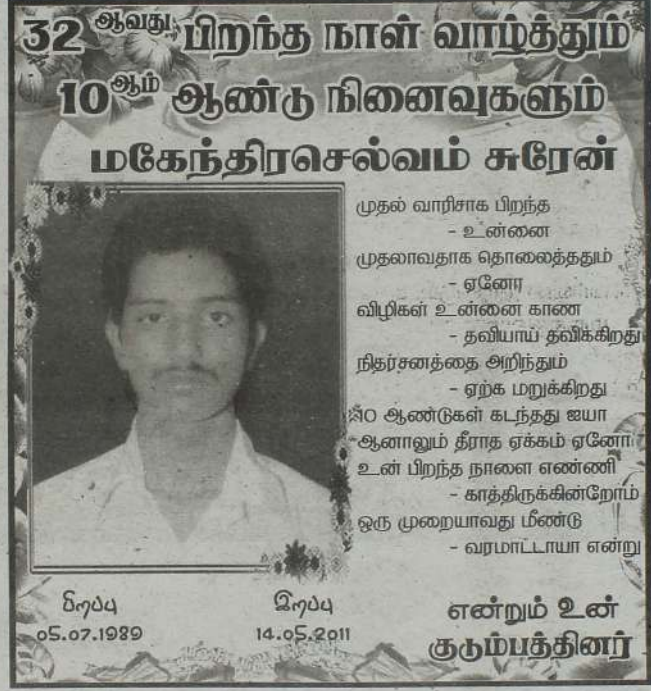 32 ஆவது பிறந்த நாள் வாழ்த்தும்
10ஆம் ஆண்டு நினைவுகளும்
மகேந்திரசெல்வம் சுரேன்
முதல் வாரிசாக பிறந்த
- உன்னை
முதலாவதாக தொலைத்ததும்
- ஏனோ
விழிகள் உன்னை காண
- தவியாய் தவிக்கிறது
நிதர்சனத்தை அறிந்தும்
- ஏற்க மறுக்கிறது
10 ஆண்டுகள் கடந்தது ஐயா
ஆனாலும் தீராத ஏக்கம் ஏனோ
உன் பிறந்த நாளை எண்ணி
- காத்திருக்கின்றோம்
ஒரு முறையாவது மீண்டு
- வரமாட்டாயா என்று
பிறப்பு
05.07.1989
இறப்பு
14.05.2011
என்றும் உன்
குடும்பத்தினர்